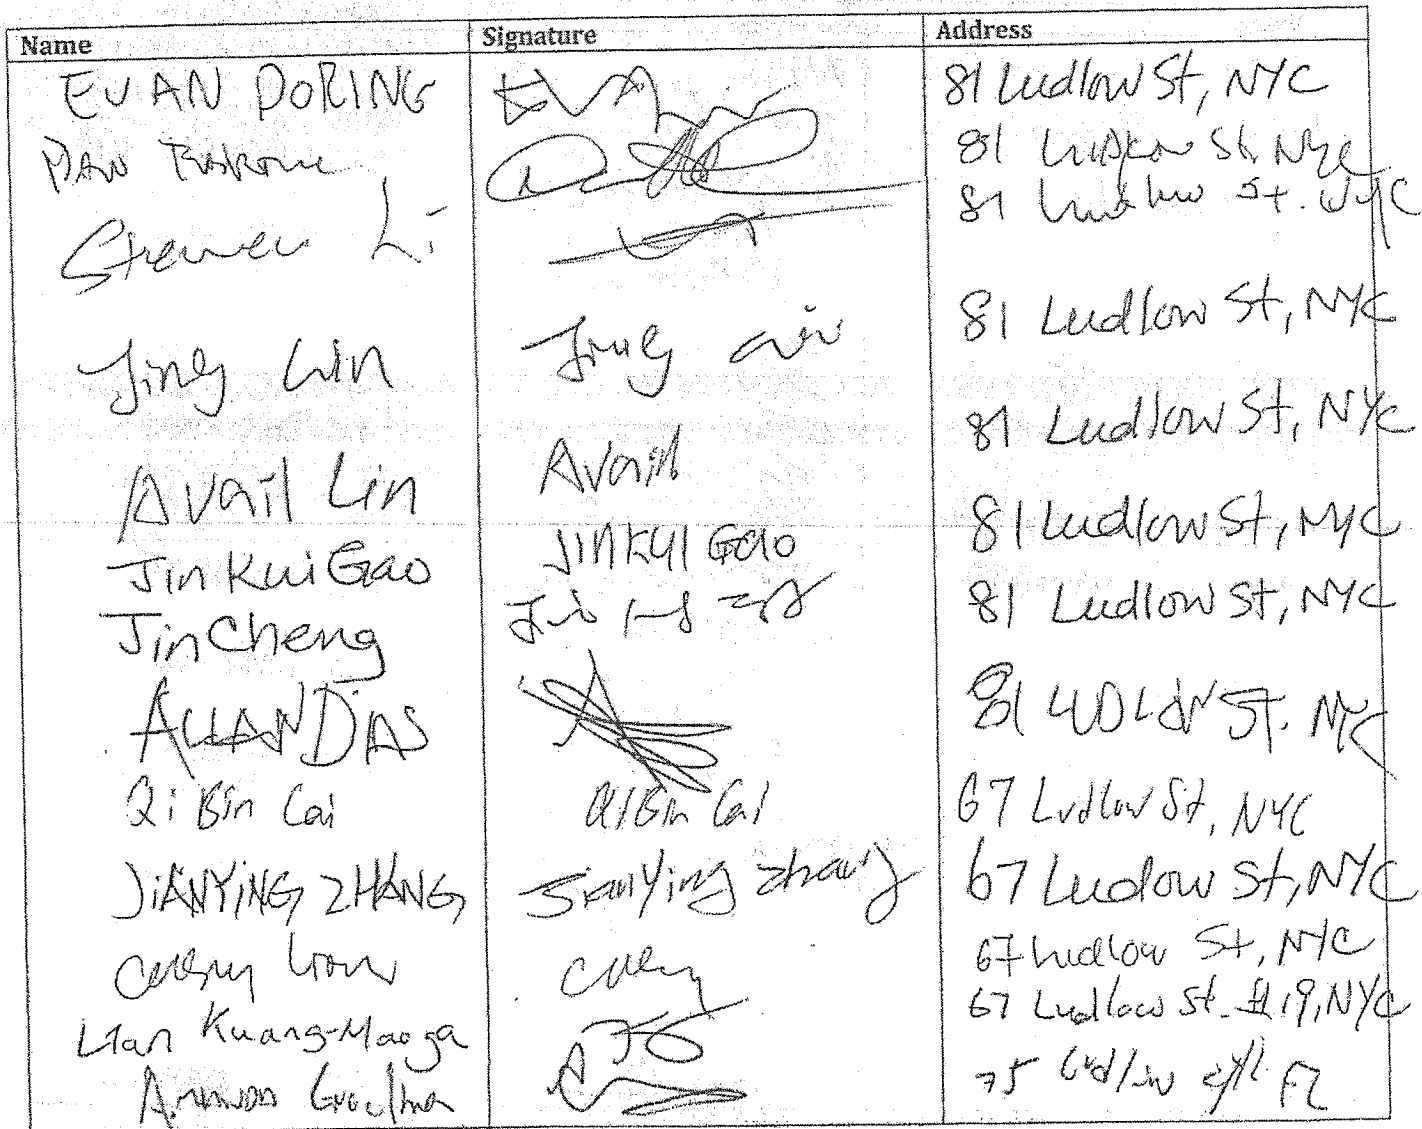 Name Signature Address
EVAN DORING EVAN 81 Ludlow St, NYC
81 Ludlow St. NYC
Steven Li 81 Ludlow St. NYC
Jing Lin Jing Lin 81 Ludlow St, NYC
Avail Lin Avail 81 Ludlow St, NYC
Jin Kui Gao JINKUI GaO 81 Ludlow St, NYC
Jin Cheng 81 Ludlow St, NYC
ALLAN DAS 81 LUDLOW ST. NYC
Qi Bin Cai Qi Bin Cai 67 Ludlow St, NYC
JIANYING ZHANG JianYing Zhang 67 Ludlow St, NYC
67 Ludlow St, NYC
Lian Kuang-Maoga 67 Ludlow St. #19, NYC
75 Ludlow